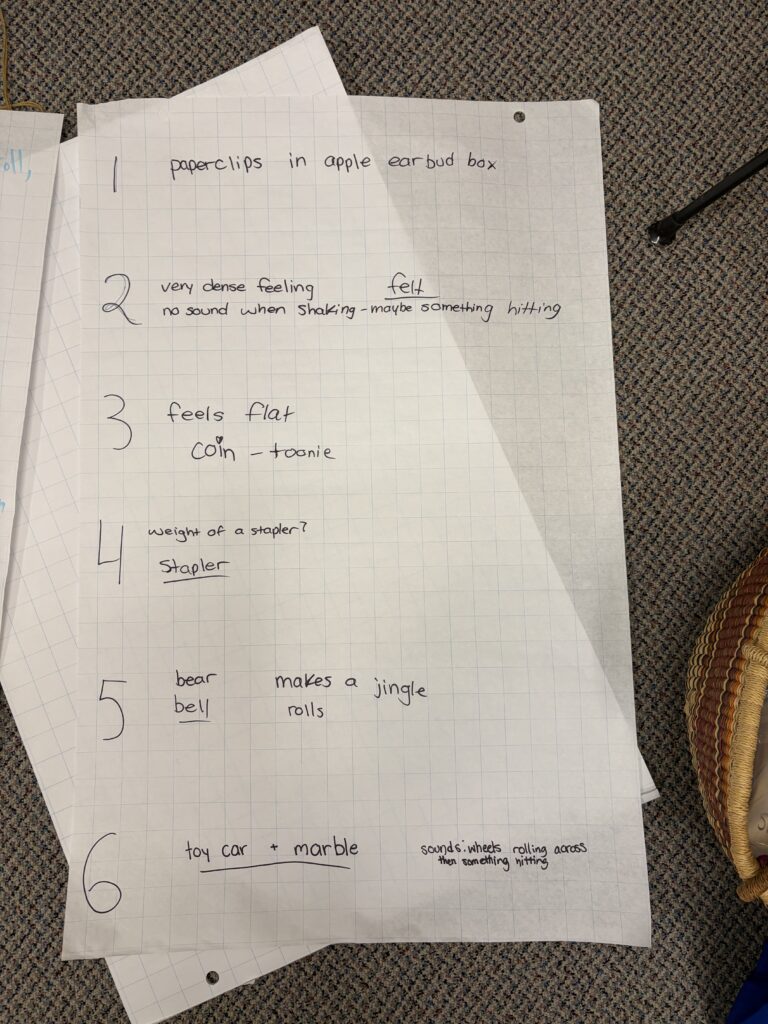 oll,
1 paperclips in apple earbud box
2 very dense feeling felt
no sound when shaking - maybe something hitting
3 feels flat
coin - toonie
4 weight of a stapler?
Stapler
5 bear makes a jingle
bell rolls
6 toy car + marble sounds: wheels rolling across
then something hitting